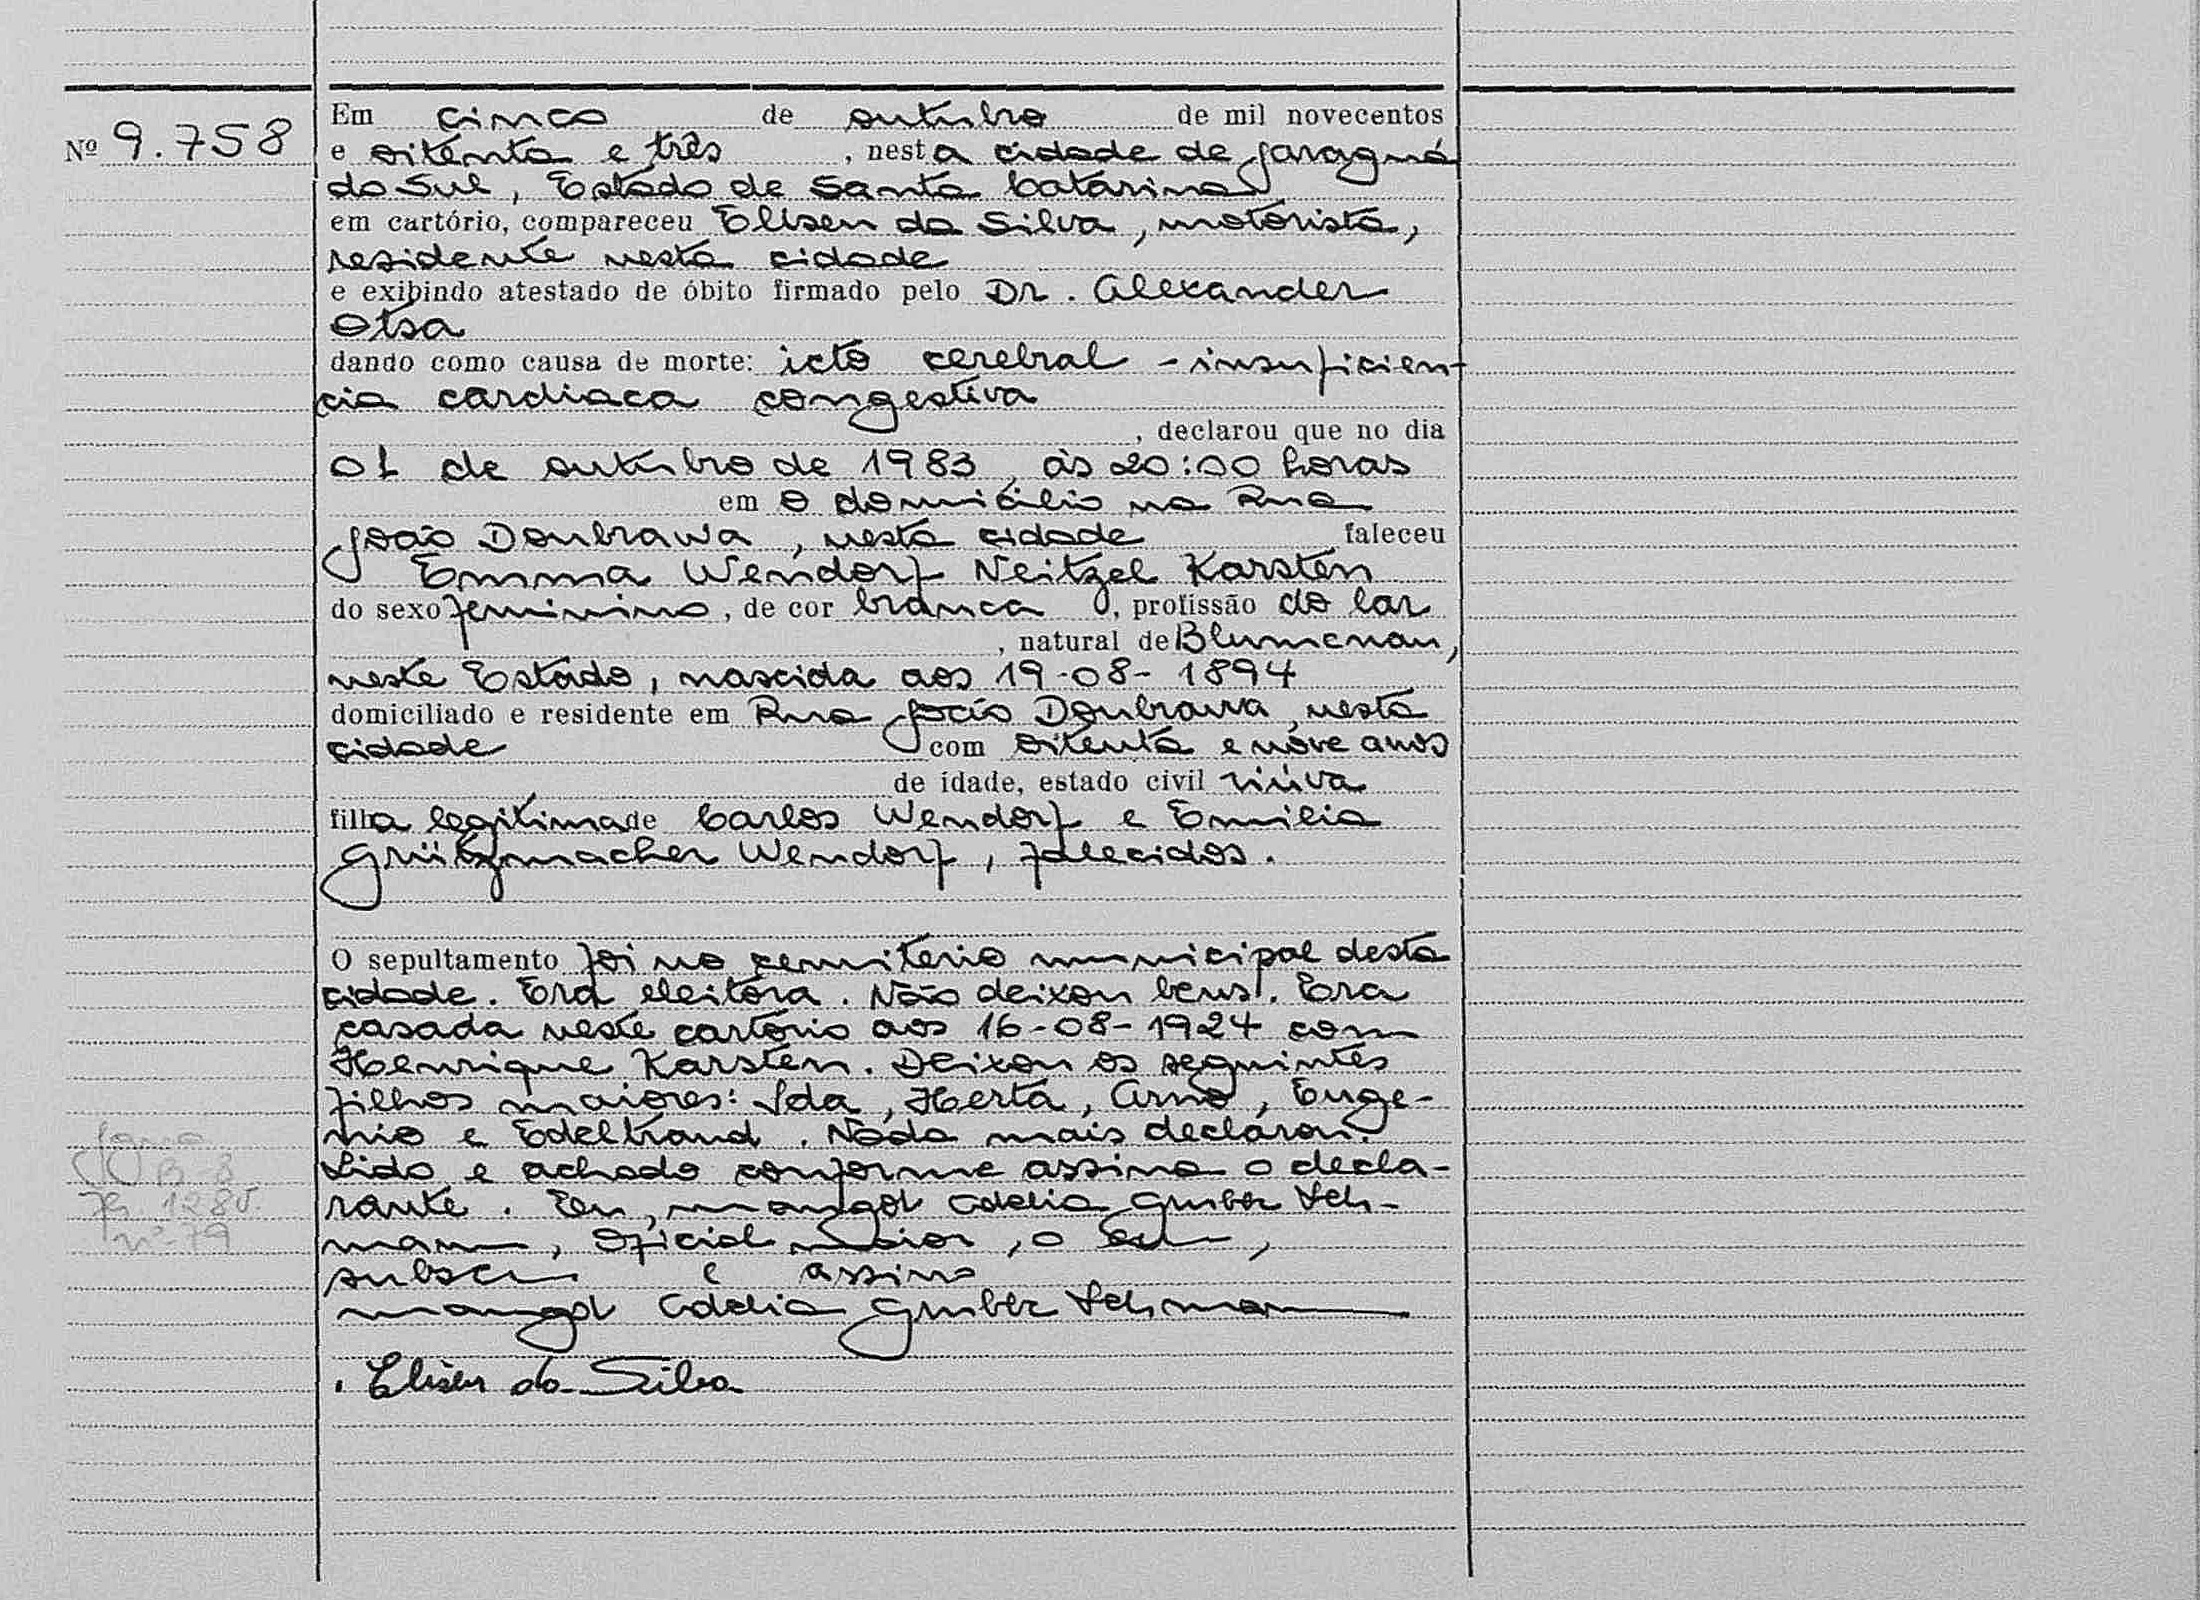 Nº 9.758
Em cinco de outubro de mil novecentos
e oitenta e três , nesta cidade de Jaraguá
do Sul, Estado de Santa Catarina
em cartório, compareceu Eliseu da Silva, motorista,
residente nesta cidade
e exibindo atestado de óbito firmado pelo Dr. Alexander
Otsa
dando como causa de morte: icto cerebral - insuficien-
cia cardiaca congestiva
, declarou que no dia
01 de outubro de 1983, às 20:00 horas
em o domicílio na Rua
João Doubrawa, nesta cidade faleceu
Emma Wendorf Neitzel Karsten
do sexo feminino, de cor branca, profissão do lar
, natural de Blumenau,
neste Estado, nascida aos 19-08-1894
domiciliado e residente em Rua João Doubrawa, nesta
cidade com oitenta e nove anos
de idade, estado civil viúva
filha legitima de Carlos Wendorf e Emilia
Grützmacher Wendorf, falecidos.
O sepultamento foi no cemitério municipal desta
cidade. Era eleitora. Não deixou bens. Era
casada neste cartório aos 16-08-1924 com
Henrique Karsten. Deixou os seguintes
filhos maiores: Ida, Herta, Arno, Euge-
nio e Edeltraud. Nada mais declarou.
Lido e achado conforme assina o decla-
rante. Eu, Margot Adelia Gruber Leh-
mann, Oficial Maior, o
e assino
Margot Adelia Gruber Lehmann
Eliseu da Silva
B-8
fls. 128v.
nº 79